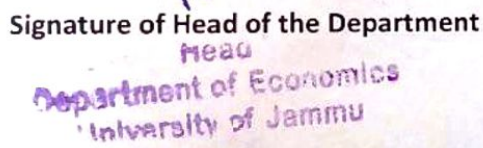 Signature of Head of the Department
Head
Department of Economics
University of Jammu